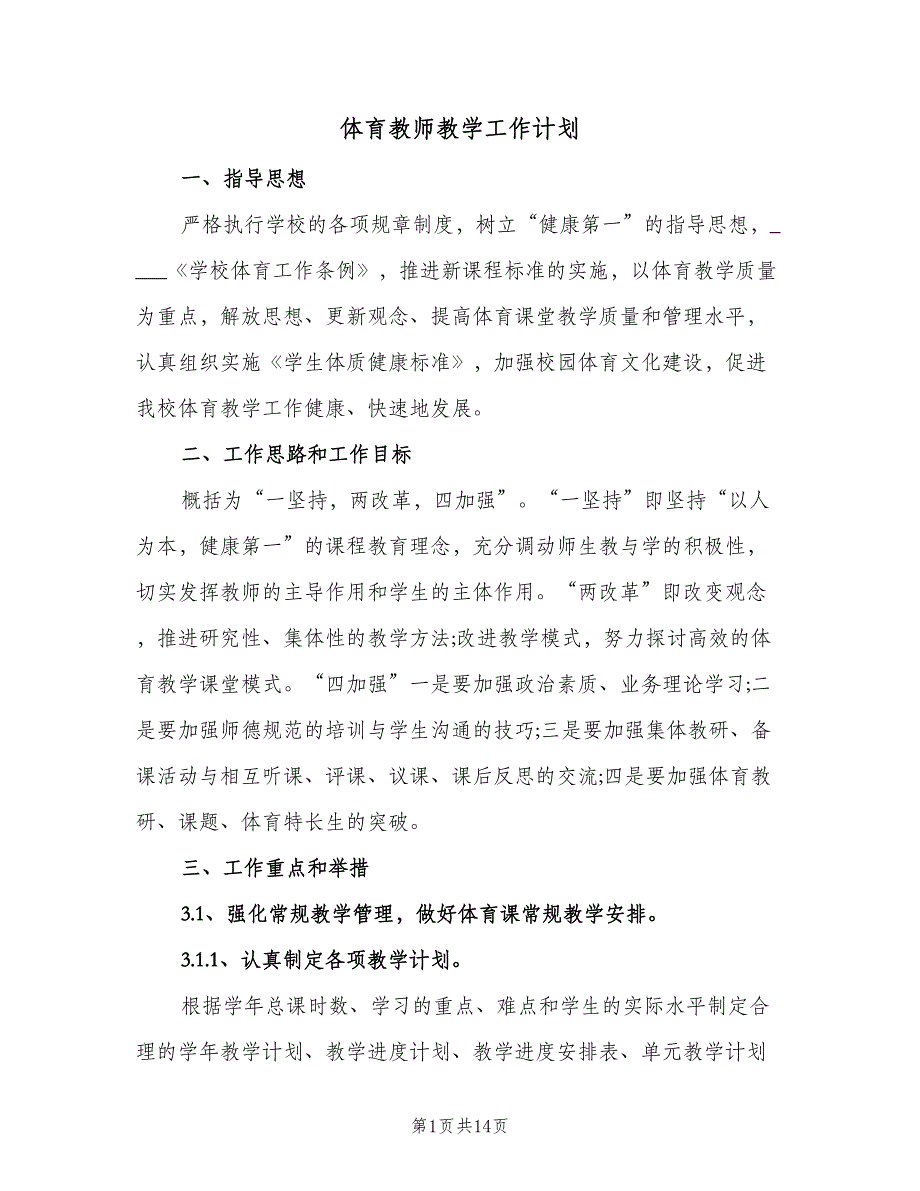 体育教师教学工作计划
一、指导思想
严格执行学校的各项规章制度，树立“健康第一”的指导思想，_
___《学校体育工作条例》，推进新课程标准的实施，以体育教学质量
为重点，解放思想、更新观念、提高体育课堂教学质量和管理水平，
认真组织实施《学生体质健康标准》，加强校园体育文化建设，促进
我校体育教学工作健康、快速地发展。
二、工作思路和工作目标
概括为“一坚持，两改革，四加强”。“一坚持”即坚持“以人
为本，健康第一”的课程教育理念，充分调动师生教与学的积极性，
切实发挥教师的主导作用和学生的主体作用。“两改革”即改变观念
，推进研究性、集体性的教学方法;改进教学模式，努力探讨高效的体
育教学课堂模式。“四加强”一是要加强政治素质、业务理论学习;二
是要加强师德规范的培训与学生沟通的技巧;三是要加强集体教研、备
课活动与相互听课、评课、议课、课后反思的交流;四是要加强体育教
研、课题、体育特长生的突破。
三、工作重点和举措
3.1、强化常规教学管理，做好体育课常规教学安排。
3.1.1、认真制定各项教学计划。
根据学年总课时数、学习的重点、难点和学生的实际水平制定合
理的学年教学计划、教学进度计划、教学进度安排表、单元教学计划
第1页共14页